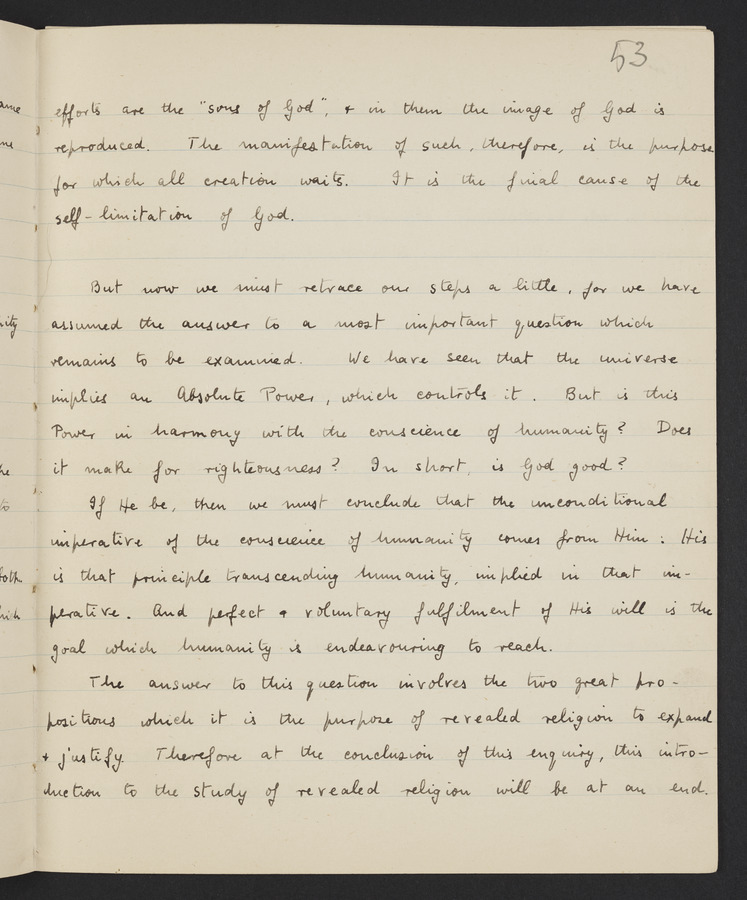 53
efforts are the "sons of God", & in them the image of God is
reproduced. The manifestation of such, therefore, is the purpose
for which all creation waits. It is the final cause of the
self-limitation of God.
But now we must retrace our steps a little, for we have
assumed the answer to a most important question which
remains to be examined. We have seen that the universe
implies an Absolute Power, which controls it. But is this
Power in harmony with the conscience of humanity? Does
it make for righteousness? In short, is God good?
If He be, then we must conclude that the unconditional
imperative of the conscience of humanity comes from Him: His
is that principle transcending humanity, implied in that im-
perative. And perfect & voluntary fulfilment of His will is the
goal which humanity is endeavouring to reach.
The answer to this question involves the two great pro-
positions which it is the purpose of revealed religion to expand
& justify. Therefore at the conclusion of this enquiry, this intro-
duction to the study of revealed religion will be at an end.